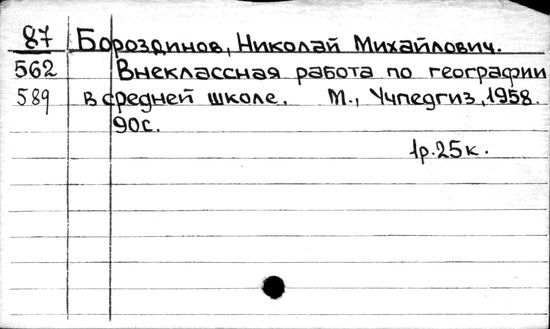 87 Бороздинов, Николай Михайлович.
562 Внеклассная работа по географии
589 в средней школе. М., Учпедгиз, 1958.
90с.
1р.25к.